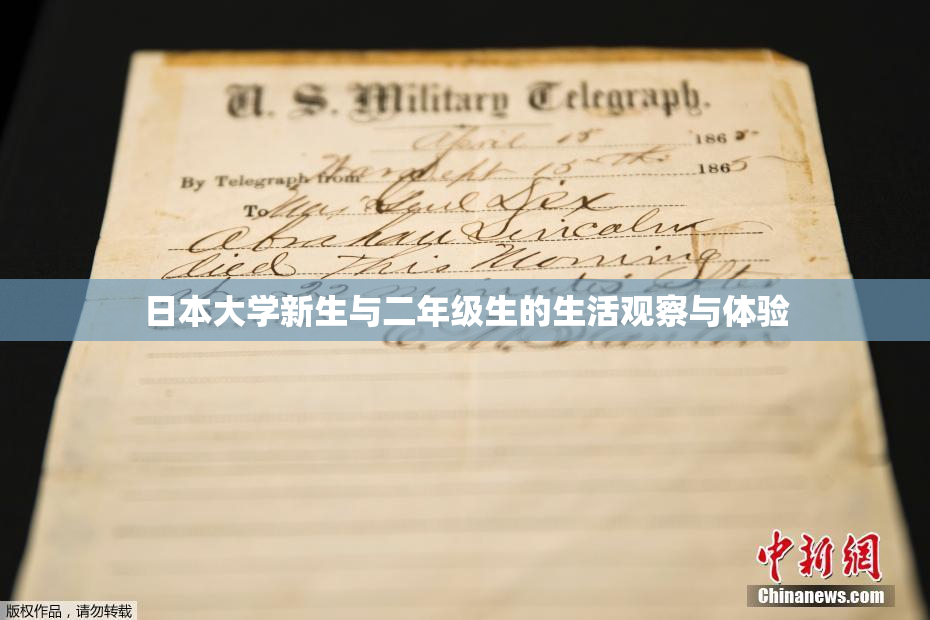 U. S. Military Telegraph.
April 15 1865-
By Telegraph from War Dept 15th 1865
To Maj Genl Dix
Abraham Lincoln
died This Morning
22 minutes after
日本大学新生与二年级生的生活观察与体验
E. M. Stanton
中新網
Chinanews.com
版权作品，请勿转载